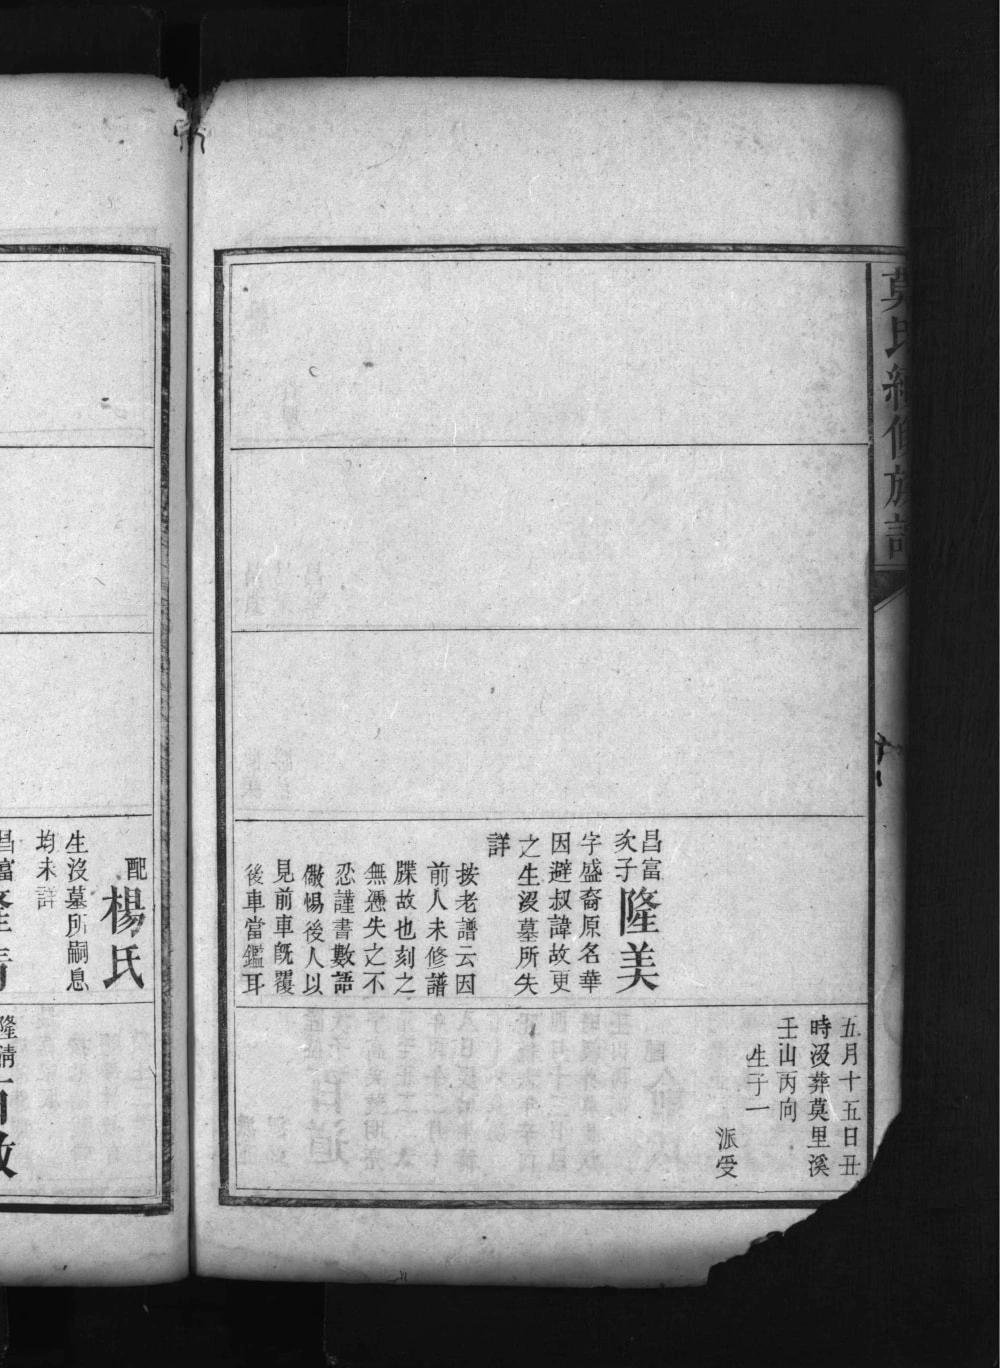 莫氏續修族譜
昌富
次子
隆美
字盛裔原名華
因避叔諱故更
之生沒墓所失
詳
按老譜云因
前人未修譜
牒故也刻之
無憑失之不
忍謹書數語
儆惕後人以
見前車既覆
後車當鑑耳
五月十五日丑
時沒葬莫里溪
壬山丙向
生子一
派受
配楊氏
生沒墓所嗣息
均未詳
昌富
隆清
隆清